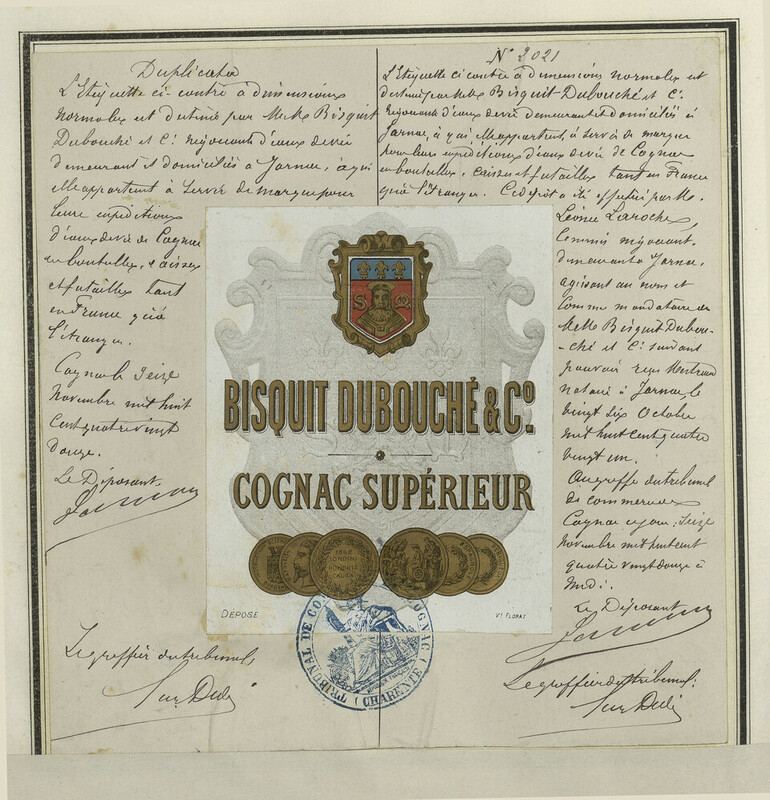 Duplicata
L'Etiquette ci-contre à dimensions
normales est destinée par MM. Bisquit
Dubouché et Cie négociants d'eaux de vie
demeurant et domiciliés à Jarnac, à qui
elle appartient à servir de marque pour
leurs expéditions
d'eaux de vie de Cognac
en bouteilles, caisses
et futailles tant
en France qu'à
l'étranger.
Cognac le seize
Novembre mil huit
cent quatre vingt
douze.
Le Déposant,
Le greffier du tribunal,
No 2021
L'Etiquette ci contre à dimensions normales et
destinée par MM. Bisquit-Dubouché et Cie
négociants d'eaux de vie demeurant et domiciliés à
Jarnac, à qui elle appartient, à servir de marque
pour leurs expéditions d'eaux de vie de Cognac
en bouteilles, caisses et futailles tant en France
qu'à l'étranger. Ce dépôt a été effectué par M.
Léonce Laroche,
Commis négociant,
demeurant à Jarnac,
agissant au nom et
comme mandataire de
MM. Bisquit Dubou-
-ché et Cie suivant
pouvoir reçu
notaire à Jarnac, le
vingt six Octobre
mil huit cent quatre
vingt un.
Au greffe du tribunal
de commerce de
Cognac ce jour, seize
Novembre mil huit cent
quatre vingt douze à
midi.
Le Déposant
Le greffier du tribunal,
S Q
BISQUIT DUBOUCHÉ & Co.
COGNAC SUPÉRIEUR
1862
LONDINI
HONORIS
CAUSA
DÉPOSÉ
Vr FLORAT
TRIBUNAL DE COGNAC (CHARENTE)